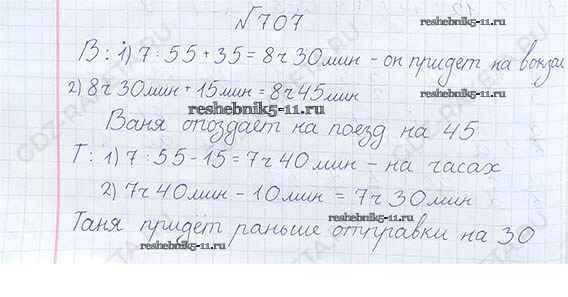 № 707
reshebnik5-11.ru
В: 1) 7 : 55 + 35 = 8ч 30мин - он придет на вокзал
2) 8ч 30мин + 15мин = 8ч 45мин
reshebnik5-11.ru
reshebnik5-11.ru
Ваня опоздает на поезд на 45
Т: 1) 7 : 55 - 15 = 7ч 40 мин - на часах
2) 7ч 40мин - 10мин = 7ч 30мин
reshebnik5-11.ru
Таня придёт раньше отправки на 30
reshebnik5-11.ru